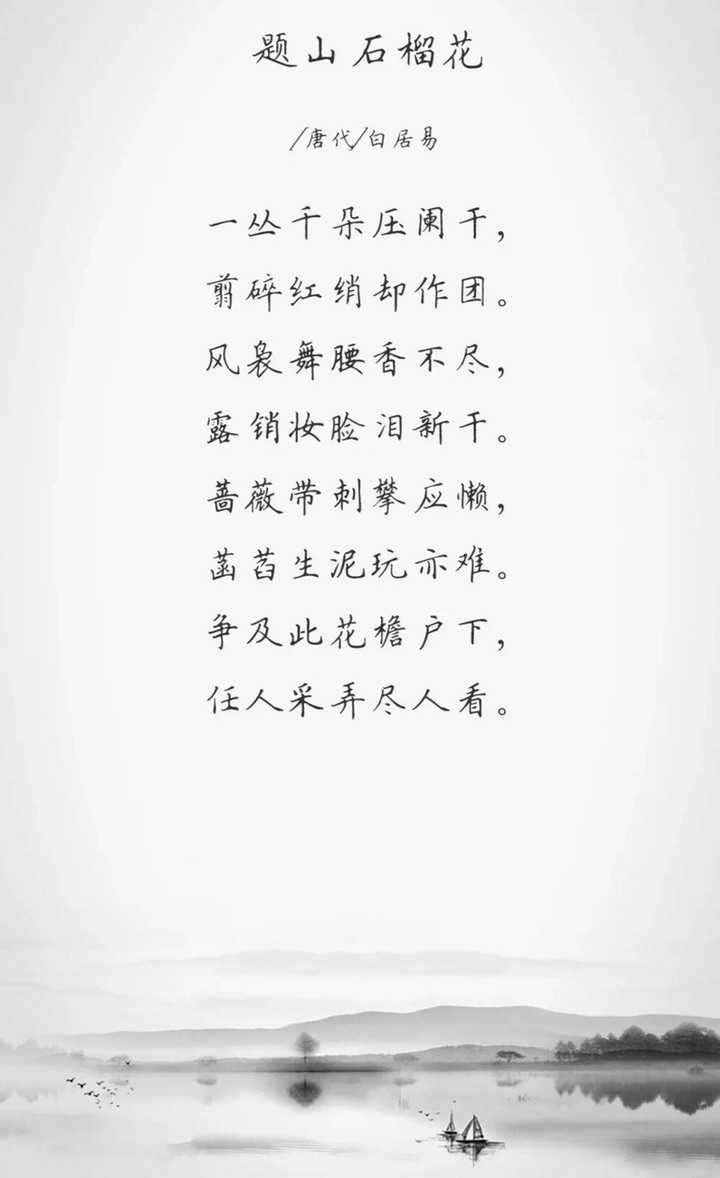 题山石榴花
/唐代/白居易
一丛千朵压阑干，
翦碎红绡却作团。
风袅舞腰香不尽，
露销妆脸泪新干。
蔷薇带刺攀应懒，
菡萏生泥玩亦难。
争及此花檐户下，
任人采弄尽人看。